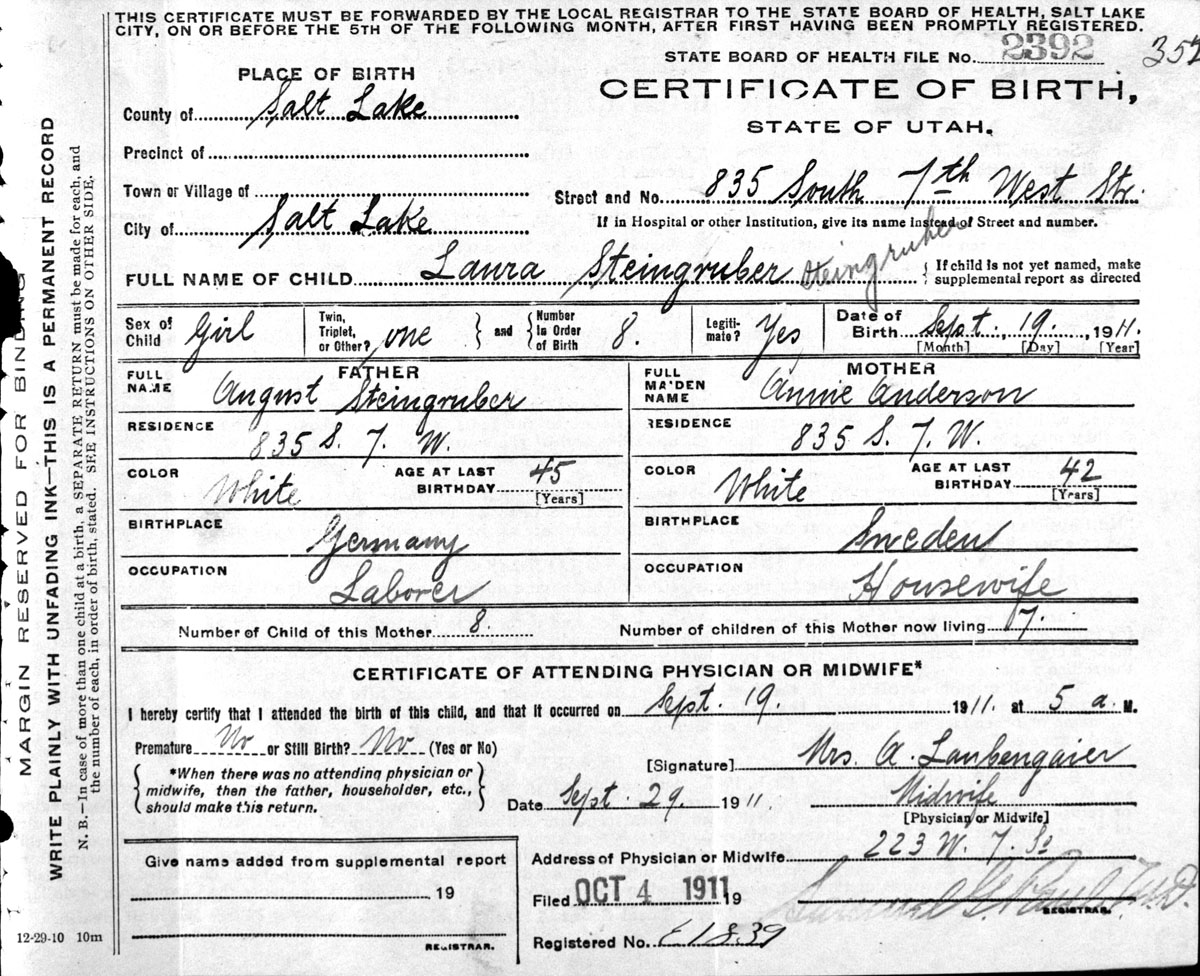 THIS CERTIFICATE MUST BE FORWARDED BY THE LOCAL REGISTRAR TO THE STATE BOARD OF HEALTH, SALT LAKE
CITY, ON OR BEFORE THE 5TH OF THE FOLLOWING MONTH, AFTER FIRST HAVING BEEN PROMPTLY REGISTERED.
STATE BOARD OF HEALTH FILE No. 2392 352
PLACE OF BIRTH
CERTIFICATE OF BIRTH,
STATE OF UTAH.
County of Salt Lake
Precinct of
Town or Village of
Street and No. 835 South 7th West Str.
City of Salt Lake
If in Hospital or other Institution, give its name instead of Street and number.
FULL NAME OF CHILD Laura Steingruber Steingruber { If child is not yet named, make
supplemental report as directed
Sex of Child Girl { Twin, Triplet, or Other? one } and { Number in Order of Birth 8. Legiti-mate? Yes Date of Birth Sept. 19. 1911.
[Month] [Day] [Year]
FATHER
FULL NAME August Steingruber
RESIDENCE 835 S. 7. W.
COLOR White AGE AT LAST BIRTHDAY 45 [Years]
BIRTHPLACE Germany
OCCUPATION Laborer
MOTHER
FULL MAIDEN NAME Annie Anderson
RESIDENCE 835 S. 7. W.
COLOR White AGE AT LAST BIRTHDAY 42 [Years]
BIRTHPLACE Sweden
OCCUPATION Housewife
Number of Child of this Mother 8. Number of children of this Mother now living 7.
CERTIFICATE OF ATTENDING PHYSICIAN OR MIDWIFE*
I hereby certify that I attended the birth of this child, and that it occurred on Sept. 19. 1911. at 5 a. M.
Premature No or Still Birth? No (Yes or No)
[Signature] Mrs. A. Laubengaier
{ *When there was no attending physician or
midwife, then the father, householder, etc.,
should make this return. }
Date Sept. 29. 1911
Midwife
[Physician or Midwife]
Give name added from supplemental report
19
REGISTRAR.
Address of Physician or Midwife 223 W. 7. So
Filed OCT 4 1911 19
REGISTRAR.
Registered No. E1839
12-29-10 10m
MARGIN RESERVED FOR BINDING
WRITE PLAINLY WITH UNFADING INK—THIS IS A PERMANENT RECORD
N. B.—In case of more than one child at a birth, a SEPARATE RETURN must be made for each, and
the number of each, in order of birth, stated. SEE INSTRUCTIONS ON OTHER SIDE.